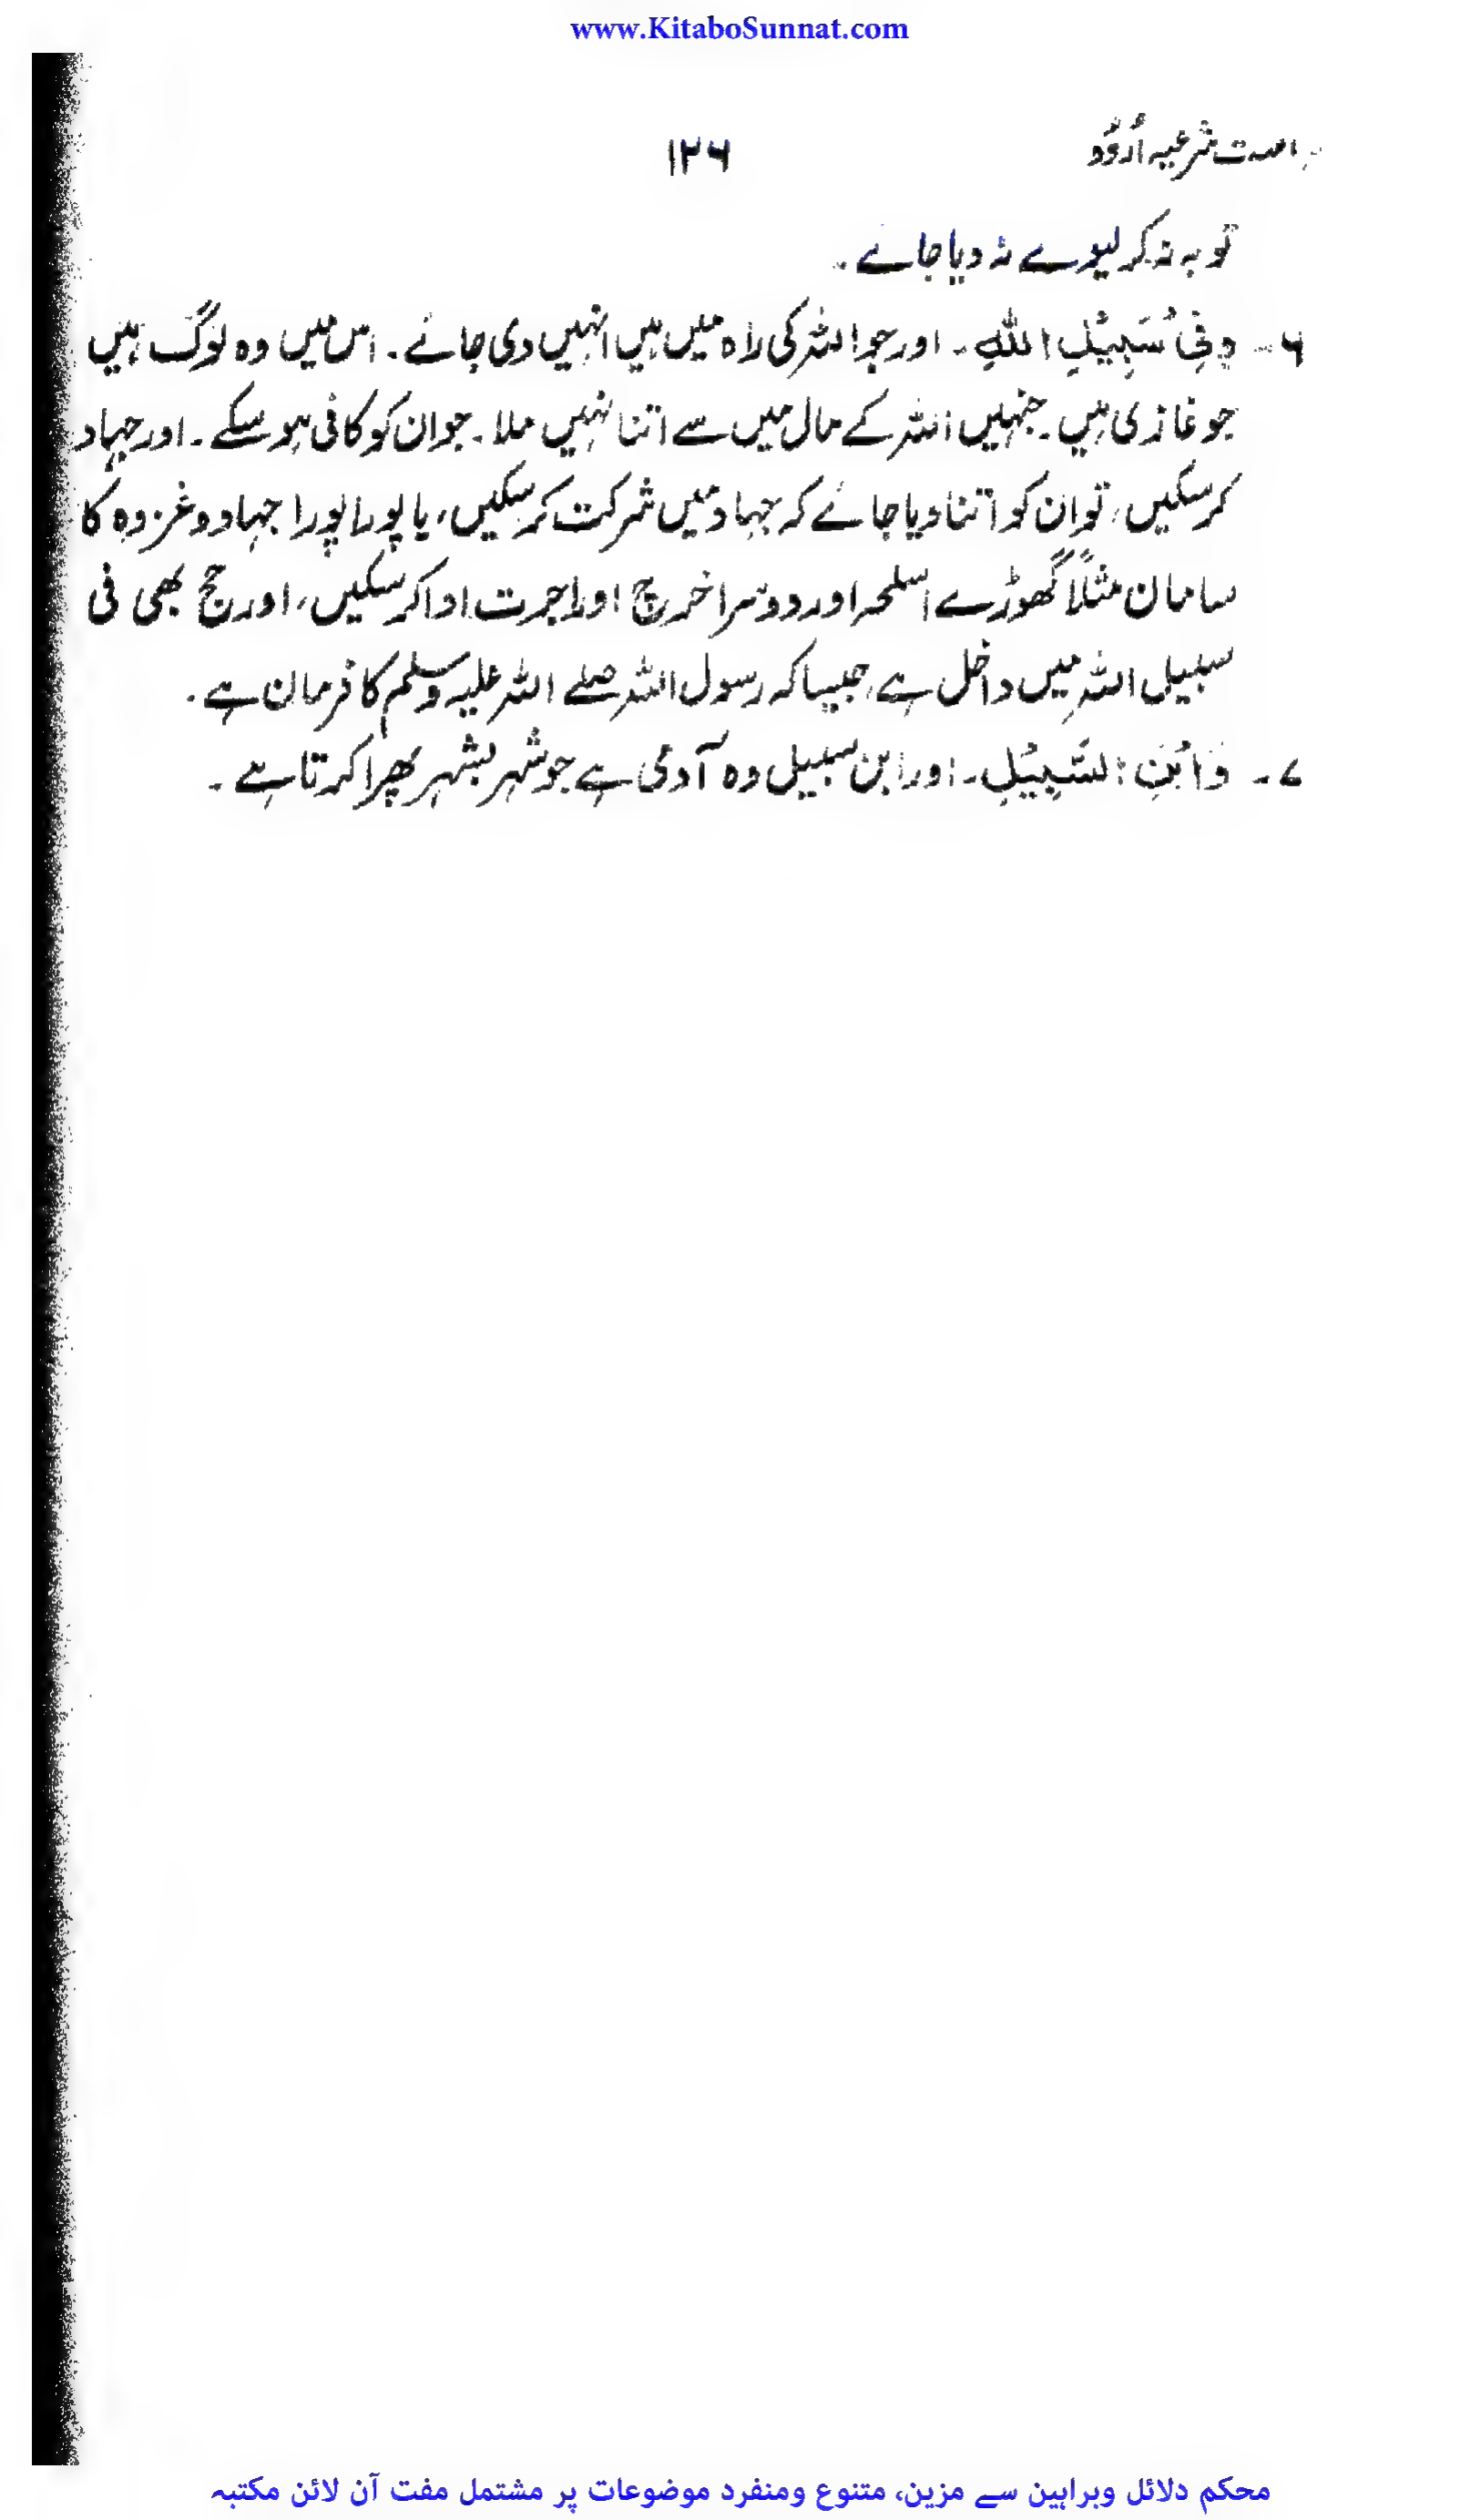 www.KitaboSunnat.com
شرعیہ اُردُو
۱۲۶
توبہ نہ کر لیوے نہ دیا جائے۔
۶۔ وَفِیْ سَبِیْلِ اللّٰہِ۔ اور جو اللہ کی راہ میں ہیں انہیں دی جائے۔ اس میں وہ لوگ ہیں
جو غازی ہیں۔ جنہیں اللہ کے مال میں سے اتنا نہیں ملا۔ جو ان کو کافی ہو سکے۔ اور جہاد
کر سکیں، تو ان کو اتنا دیا جائے کہ جہاد میں شرکت کر سکیں، یا پورا پورا جہاد و غزوہ کا
سامان مثلاً گھوڑے اسلحہ اور دوسرا خرچ اور اجرت ادا کر سکیں، اور حج بھی فی
سبیل اللہ میں داخل ہے، جیسا کہ رسول اللہ صلے اللہ علیہ وسلم کا فرمان ہے۔
۷۔ وَابْنِ السَّبِیْلِ۔ اور ابن سبیل وہ آدمی ہے جو شہر بشہر پھرا کرتا ہے۔
محکم دلائل وبراہین سے مزین، متنوع ومنفرد موضوعات پر مشتمل مفت آن لائن مکتبہ